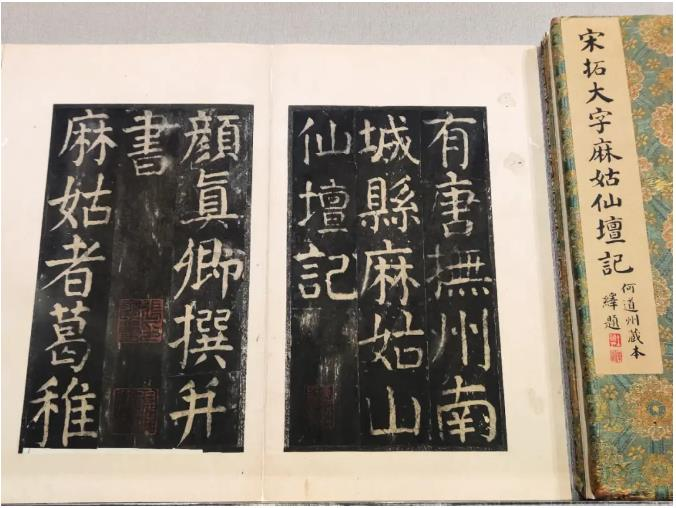 有唐撫州南
城縣麻姑山
仙壇記
顔眞卿撰并
書
麻姑者葛稚
宋拓大字麻姑仙壇記
何道州藏本
繹題